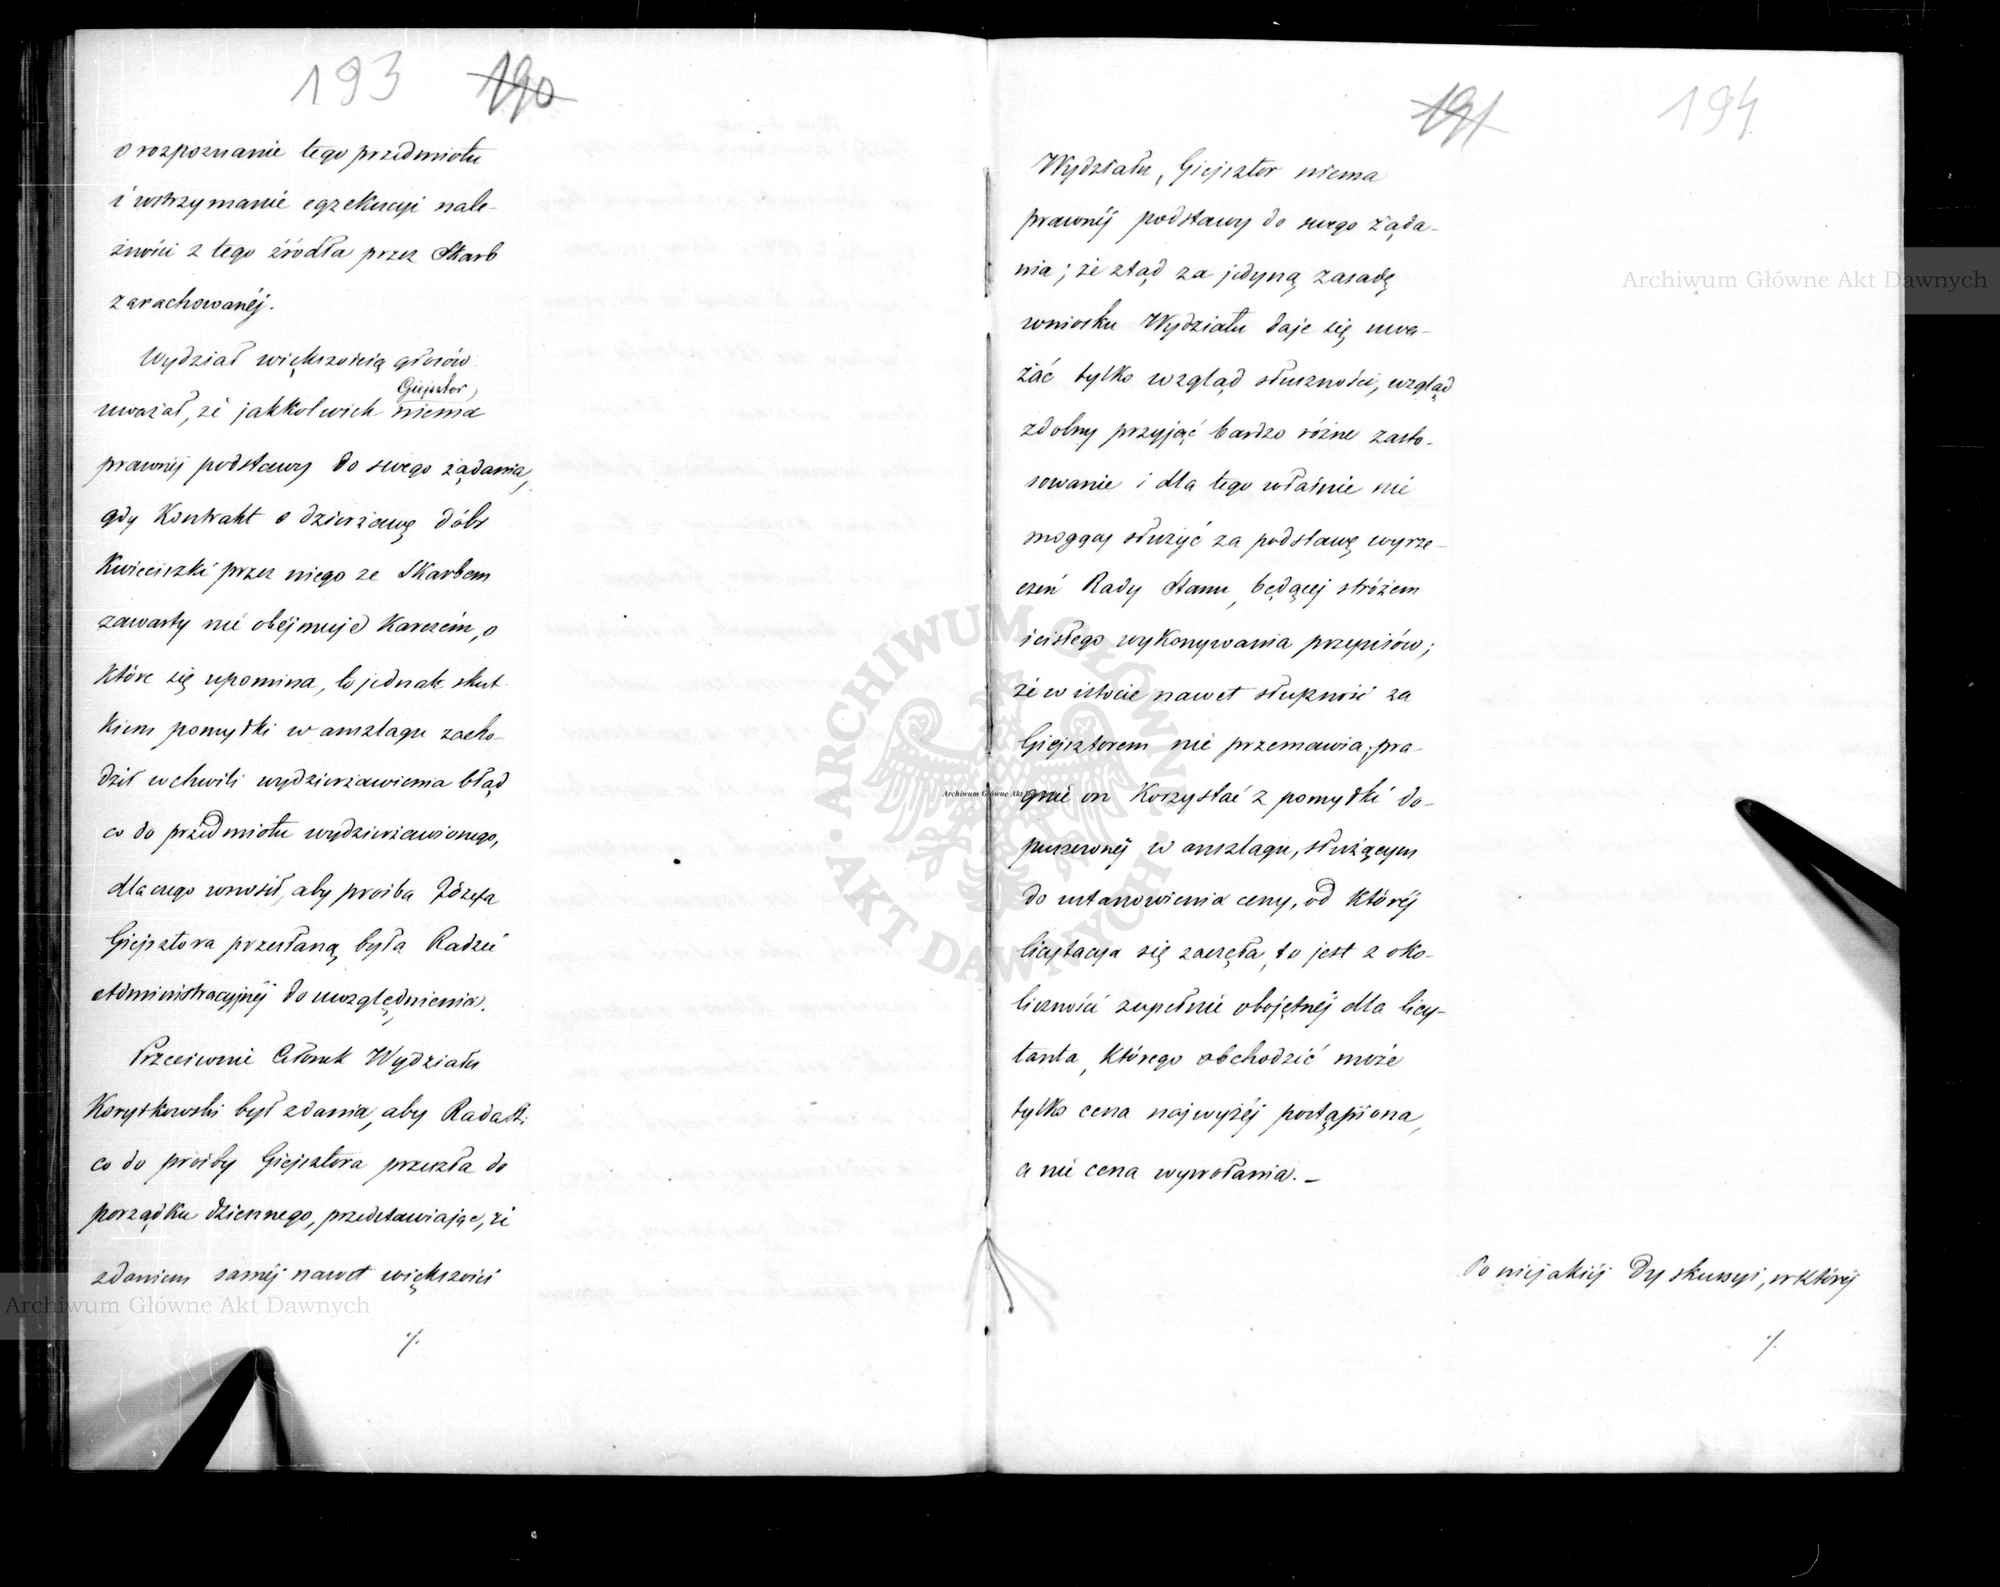 193 190
o rozpoznanie tego przedmiotu
i wstrzymanie egzekucyi nale-
żności z tego źródła przez Skarb
zarachowanéj.
Wydział większością głosów
uważał, że jakkolwiek Giejsztor, niema
prawnéj podstawy do swego żądania,
gdy Kontrakt o dzierżawę dóbr
Kwieciszki przez niego ze Skarbem
zawarty nie obejmuje Karczem, o
które się upomina, to jednak skut-
kiem pomyłki w anszlagu zacho-
dził w chwili wydzierżawienia błąd
co do przedmiotu wydzierżawionego,
dla czego wnosił, aby prośba Józefa
Giejsztora przesłaną była Radzie
Administracyjnéj do uwzględnienia.
Przeciwnie Członek Wydziału
Korytkowski był zdania, aby Rada St.
co do prośby Giejsztora przeszła do
porządku dziennego, przedstawiając, że
zdaniem saméj nawet większości
./.
191 194
Wydziału, Giejsztor niema
prawnéj podstawy do swego żąda-
nia; że ztąd za jedyną zasadę
wniosku Wydziału daje się uwa-
żać tylko wzgląd słuszności, wzgląd
zdolny przyjąć bardzo różne zasto-
sowanie i dla tego właśnie nie
mogący służyć za podstawę wyrze-
czeń Rady Stanu, będącéj stróżem
ścisłego wykonywania przepisów;
że w istocie nawet słuszność za
Giejsztorem nie przemawia; pra-
gnie on Korzystać z pomyłki do-
puszczonéj w anszlagu, służącym
do ustanowienia ceny, od któréj
licytacya się zaczęła, to jest z oko-
liczności zupełnie obojętnéj dla licy-
tanta, którego obchodzić może
tylko cena najwyżéj postąpiona,
a nie cena wywołania. –
Po niejakiéj Dyskussyi, w któréj
./.
Archiwum Główne Akt Dawnych
Archiwum Główne Akt Dawnych
Archiwum Główne Akt Dawnych
ARCHIWUM GŁÓWNE AKT DAWNYCH